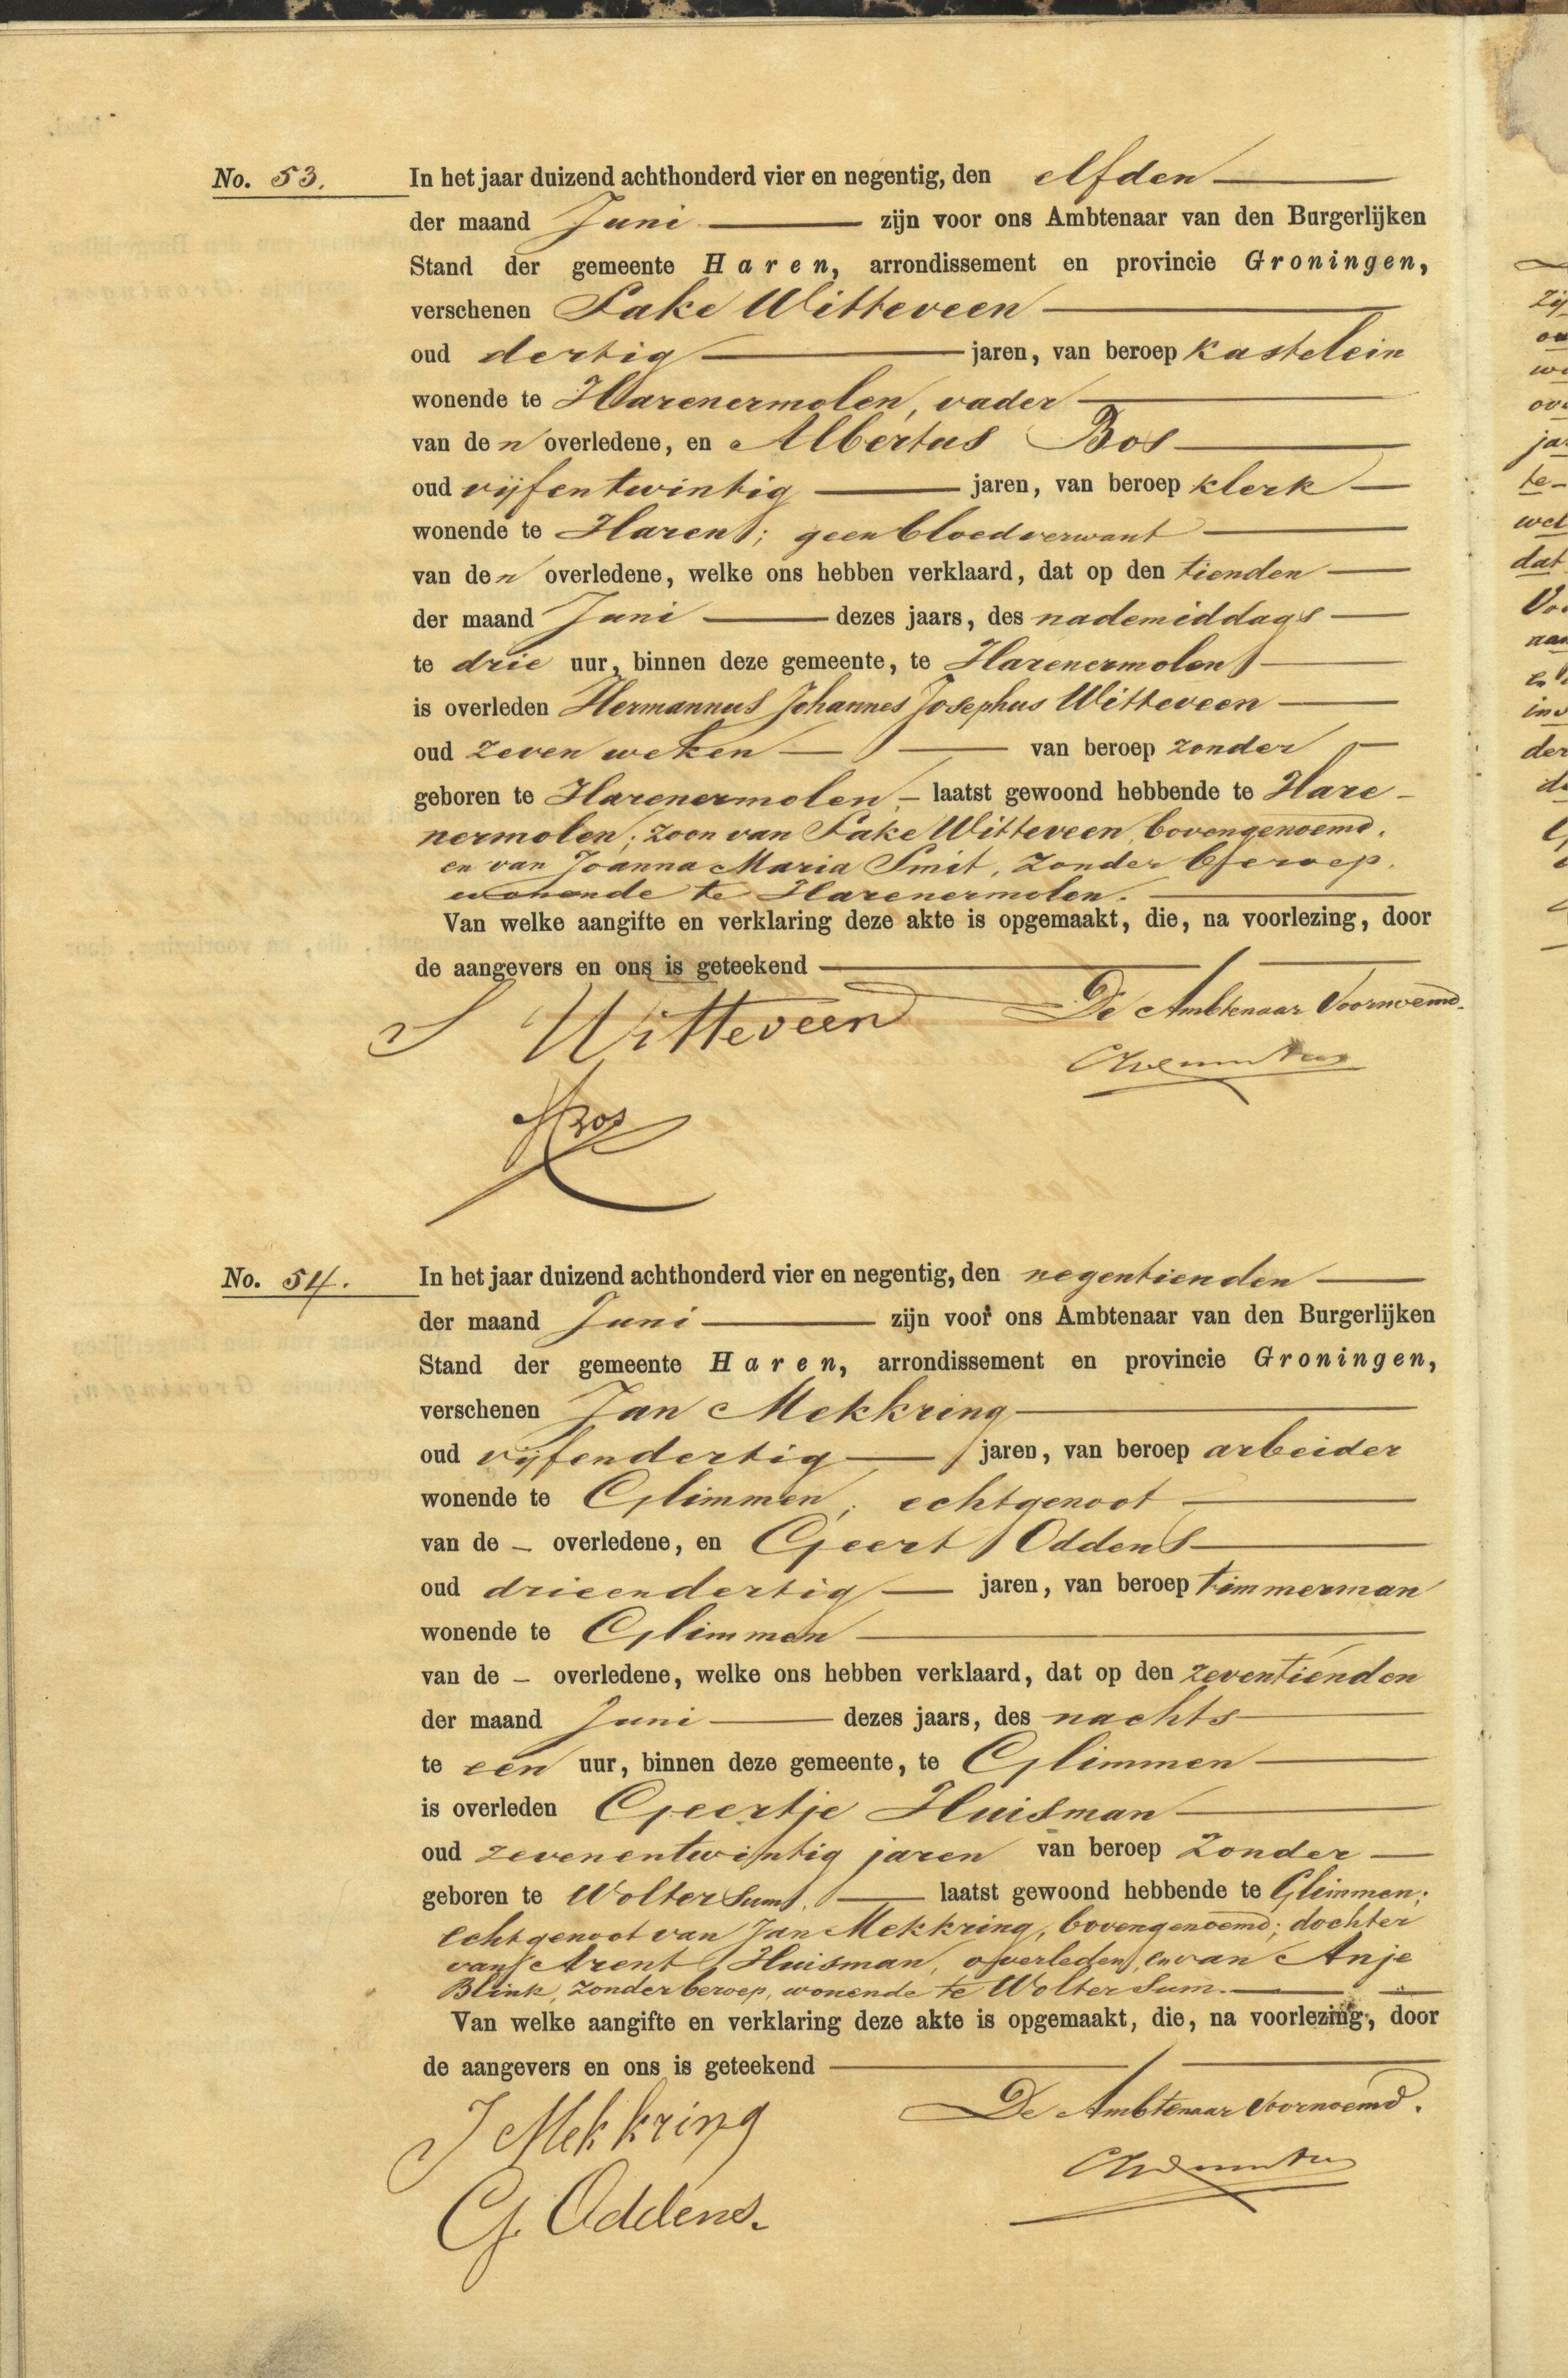 No. 53. In het jaar duizend achthonderd vier en negentig, den elfden
der maand Juni zijn voor ons Ambtenaar van den Burgerlijken
Stand der gemeente Haren, arrondissement en provincie Groningen,
verschenen Sake Witteveen
oud dertig jaren, van beroep kastelein
wonende te Harenermolen, vader
van den overledene, en Albertus Bos
oud vijfentwintig jaren, van beroep klerk
wonende te Haren; geen bloedverwant
van den overledene, welke ons hebben verklaard, dat op den tienden
der maand Juni dezes jaars, des nademiddags
te drie uur, binnen deze gemeente, te Harenermolen
is overleden Hermannus Johannes Josephus Witteveen
oud zeven weken van beroep zonder
geboren te Harenermolen, laatst gewoond hebbende te Hare-
nermolen; zoon van Sake Witteveen, bovengenoemd,
en van Joanna Maria Smit, zonder beroep,
wonende te Harenermolen.
Van welke aangifte en verklaring deze akte is opgemaakt, die, na voorlezing, door
de aangevers en ons is geteekend
S Witteveen De Ambtenaar Voornoemd.
ABos
No. 54. In het jaar duizend achthonderd vier en negentig, den negentienden
der maand Juni zijn voor ons Ambtenaar van den Burgerlijken
Stand der gemeente Haren, arrondissement en provincie Groningen,
verschenen Jan Mekkring
oud vijfendertig jaren, van beroep arbeider
wonende te Glimmen, echtgenoot
van de – overledene, en Geert Oddens
oud drieendertig jaren, van beroep timmerman
wonende te Glimmen
van de – overledene, welke ons hebben verklaard, dat op den zeventienden
der maand Juni dezes jaars, des nachts
te een uur, binnen deze gemeente, te Glimmen
is overleden Geertje Huisman
oud zevenentwintig jaren van beroep zonder
geboren te Woltersum, laatst gewoond hebbende te Glimmen;
echtgenoot van Jan Mekkring, bovengenoemd; dochter
van Arent Huisman, overleden, en van Anje
Blink, zonder beroep, wonende te Woltersum.
Van welke aangifte en verklaring deze akte is opgemaakt, die, na voorlezing, door
de aangevers en ons is geteekend
J Mekkring De Ambtenaar voornoemd.
G. Oddens.